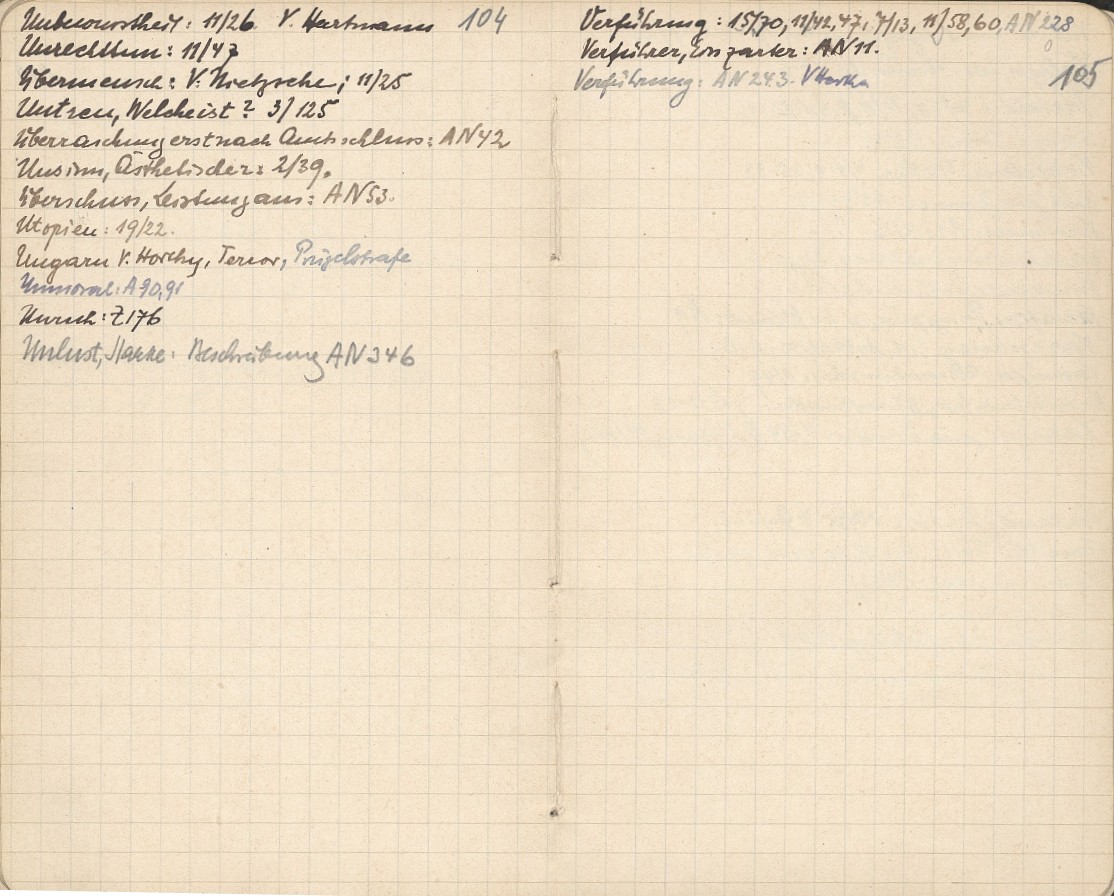 Unbewusstheit: 11/26 V. Hartmann 104
Unrechttun: 11/47
Übermensch: V. Nietzsche; 11/25
Untreu, Welche ist? 3/125
Überraschung erst nach Amtsschluss: AN 42
Unsinn, Ästhetischer: 2/39.
Überschuss, Leistung aus: AN 53.
Utopien: 19/22.
Ungarn V. Horthy, Terror, Prügelstrafe
Unmoral: A 90,91
Z 176
Unlust, Beschreibung AN 346
Verführung: 15/70, 12/42, 47, 7/13, 11/58, 60, AN 228
Verführer, zarter: AN 11.
Verführung: AN 243.
105